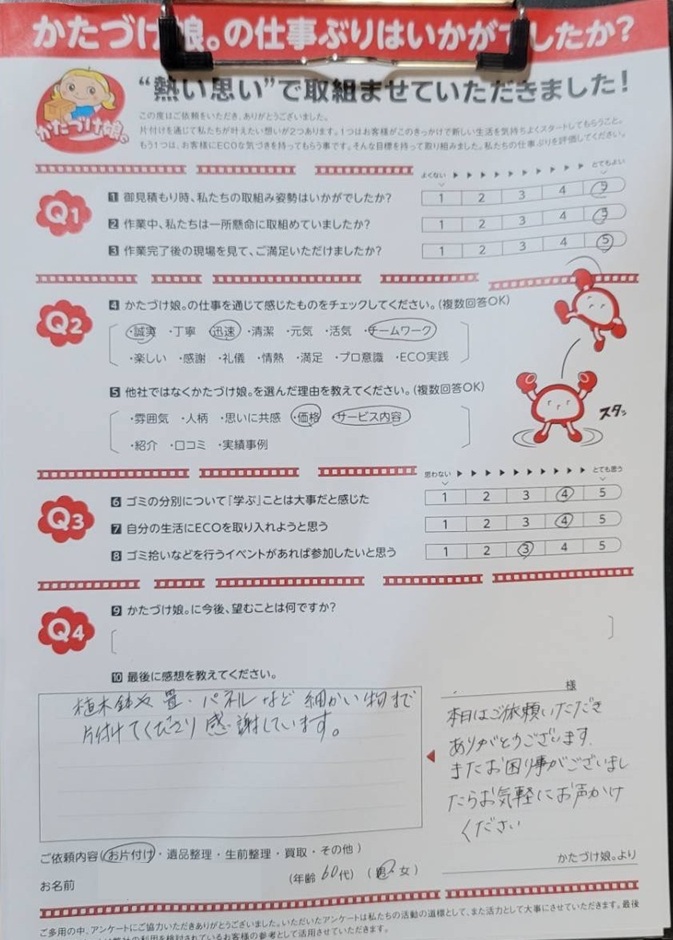 かたづけ娘。の仕事ぶりはいかがでしたか？
かたづけ娘。
“熱い思い”で取組ませていただきました！
この度はご依頼をいただき、ありがとうございました。
片付けを通じて私たちが叶えたい想いが2つあります。1つはお客様がこのきっかけで新しい生活を気持ちよくスタートしてもらうこと。
もう1つは、お客様にECOな気づきを持ってもらう事です。そんな目標を持って取り組みました。私たちの仕事ぶりを評価してください。
よくない とてもよい
Q1
1 御見積もり時、私たちの取組み姿勢はいかがでしたか？ 1 2 3 4 5
2 作業中、私たちは一所懸命に取組めていましたか？ 1 2 3 4 5
3 作業完了後の現場を見て、ご満足いただけましたか？ 1 2 3 4 5
Q2
4 かたづけ娘。の仕事を通じて感じたものをチェックしてください。(複数回答OK)
・誠実 ・丁寧 ・迅速 ・清潔 ・元気 ・活気 ・チームワーク
・楽しい ・感謝 ・礼儀 ・情熱 ・満足 ・プロ意識 ・ECO実践
5 他社ではなくかたづけ娘。を選んだ理由を教えてください。(複数回答OK)
・雰囲気 ・人柄 ・思いに共感 ・価格 ・サービス内容
・紹介 ・口コミ ・実績事例
スタッ
思わない とても思う
Q3
6 ゴミの分別について「学ぶ」ことは大事だと感じた 1 2 3 4 5
7 自分の生活にECOを取り入れようと思う 1 2 3 4 5
8 ゴミ拾いなどを行うイベントがあれば参加したいと思う 1 2 3 4 5
Q4
9 かたづけ娘。に今後、望むことは何ですか？
10 最後に感想を教えてください。
植木鉢や畳・パネルなど細かい物まで
片付けてくださり感謝しています。
様
本日はご依頼いただき
ありがとうございます。
またお困り事がございまし
たらお気軽にお声かけ
ください
かたづけ娘。より
ご依頼内容(お片付け・遺品整理・生前整理・買取・その他)
お名前 (年齢 60代) (男・女)
ご多用の中、アンケートにご協力いただきありがとうございました。いただいたアンケートは私たちの活動の道標として、また活力として大事にさせていただきます。最後
の利用を検討されているお客様の参考として活用させていただきます。